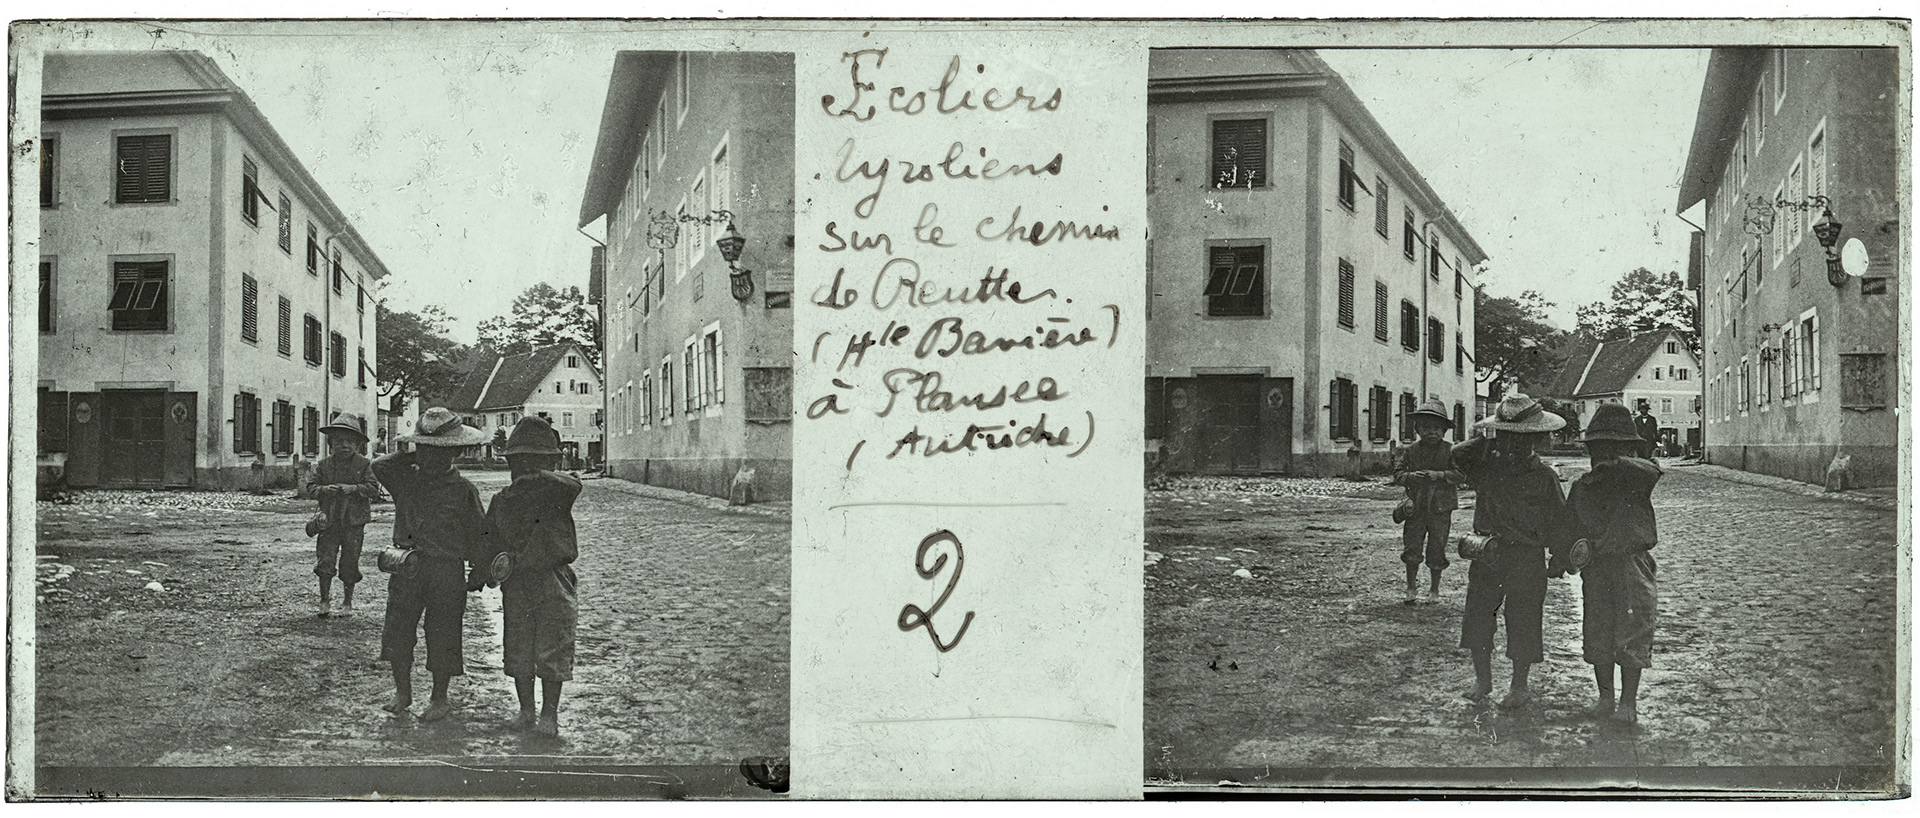 Écoliers
tyroliens
sur le chemin
de Reutte.
(Hle Bavière)
à Plansee
(Autriche)
2